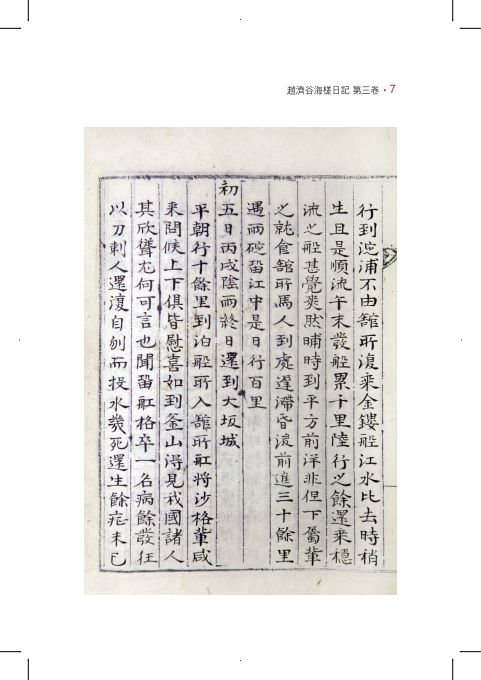 趙濟谷海槎日記 第三卷 • 7
行到淀浦不由舘所復乘金鏤船江水比去時稍
生且是順流午末發船累千里陸行之餘還乘穩
流之船甚覺爽然晡時到平方前洋非但下屬輩
之就食舘所馬人到處遲滯昏後前進三十餘里
遇雨碇留江中是日行百里
初五日丙戌陰雨終日還到大坂城
平朝行十餘里到泊船所入舘所缸將沙格輩咸
來問候上下俱皆慰喜如到釜山得見我國諸人
其欣聳尤何可言也聞留缸格卒一名病餘發狂
以刀刺人還復自刎而投水幾死還生餘症未已